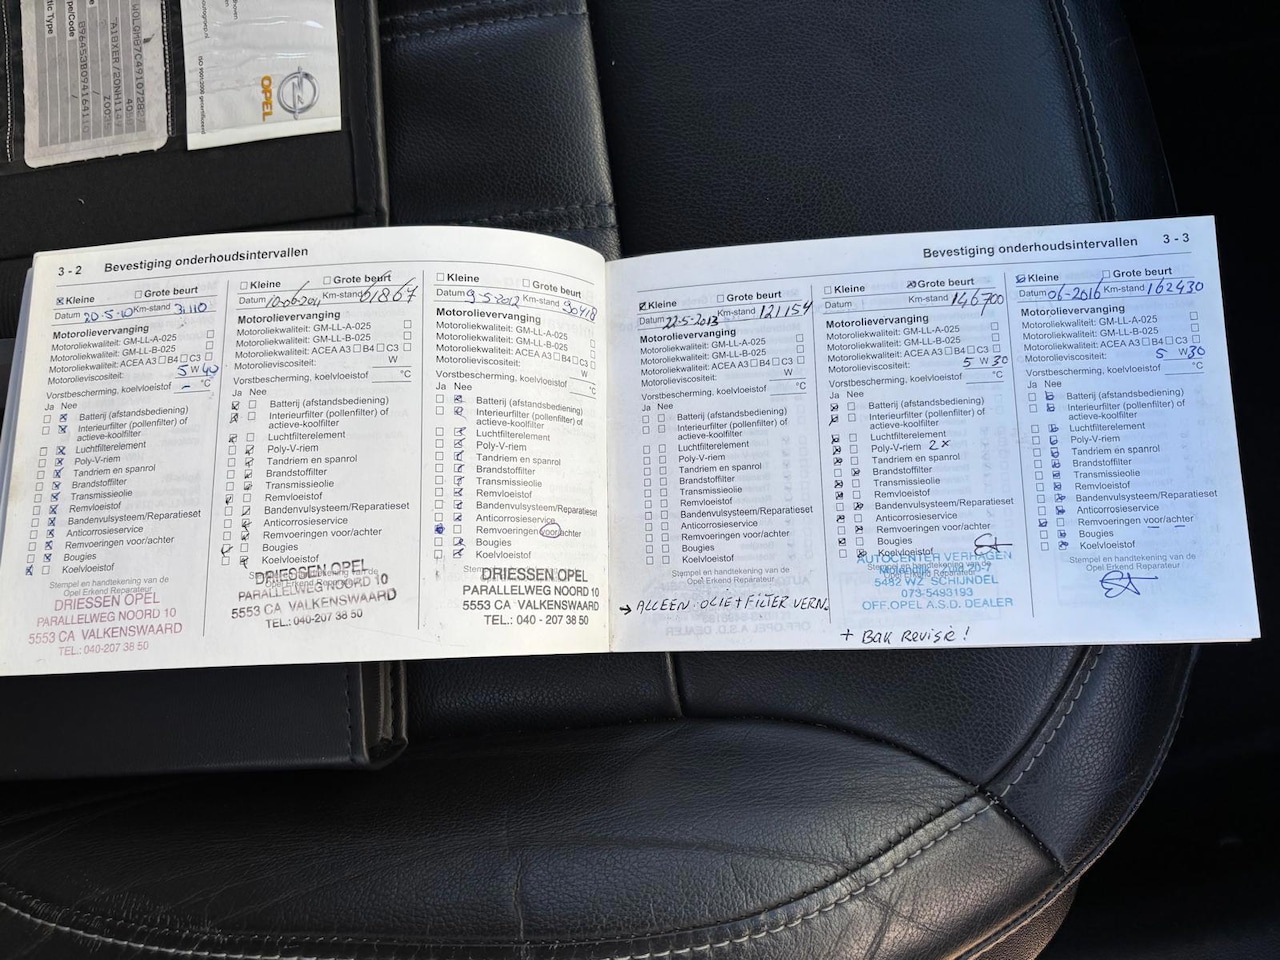 OPEL
ISO 9001:2000 gecertificeerd
3 - 2 Bevestiging onderhoudsintervallen
Kleine Grote beurt
Datum 20-5-10 Km-stand 31110
Motorolievervanging
Motoroliekwaliteit: GM-LL-A-025
Motoroliekwaliteit: GM-LL-B-025
Motoroliekwaliteit: ACEA A3 B4 C3
Motorolieviscositeit: 5 W 40
Vorstbescherming, koelvloeistof - °C
Ja Nee
Batterij (afstandsbediening)
Interieurfilter (pollenfilter) of
actieve-koolfilter
Luchtfilterelement
Poly-V-riem
Tandriem en spanrol
Brandstoffilter
Transmissieolie
Remvloeistof
Bandenvulsysteem/Reparatieset
Anticorrosieservice
Remvoeringen voor/achter
Bougies
Koelvloeistof
Stempel en handtekening van de
Opel Erkend Reparateur
DRIESSEN OPEL
PARALLELWEG NOORD 10
5553 CA VALKENSWAARD
TEL.: 040-207 38 50
Kleine Grote beurt
Datum 10-06-2011 Km-stand 61867
Motorolievervanging
Motoroliekwaliteit: GM-LL-A-025
Motoroliekwaliteit: GM-LL-B-025
Motoroliekwaliteit: ACEA A3 B4 C3
Motorolieviscositeit: W
Vorstbescherming, koelvloeistof °C
Ja Nee
Batterij (afstandsbediening)
Interieurfilter (pollenfilter) of
actieve-koolfilter
Luchtfilterelement
Poly-V-riem
Tandriem en spanrol
Brandstoffilter
Transmissieolie
Remvloeistof
Bandenvulsysteem/Reparatieset
Anticorrosieservice
Remvoeringen voor/achter
Bougies
Koelvloeistof
DRIESSEN OPEL
PARALLELWEG NOORD 10
5553 CA VALKENSWAARD
TEL.: 040-207 38 50
Kleine Grote beurt
Datum 9-5-2012 Km-stand 90418
Motorolievervanging
Motoroliekwaliteit: GM-LL-A-025
Motoroliekwaliteit: GM-LL-B-025
Motoroliekwaliteit: ACEA A3 B4 C3
Motorolieviscositeit: W
Vorstbescherming, koelvloeistof °C
Ja Nee
Batterij (afstandsbediening)
Interieurfilter (pollenfilter) of
actieve-koolfilter
Luchtfilterelement
Poly-V-riem
Tandriem en spanrol
Brandstoffilter
Transmissieolie
Remvloeistof
Bandenvulsysteem/Reparatieset
Anticorrosieservice
Remvoeringen voor/achter
Bougies
Koelvloeistof
DRIESSEN OPEL
PARALLELWEG NOORD 10
5553 CA VALKENSWAARD
TEL.: 040 - 207 38 50
Bevestiging onderhoudsintervallen 3 - 3
Kleine Grote beurt
Datum 22-5-2013 Km-stand 121154
Motorolievervanging
Motoroliekwaliteit: GM-LL-A-025
Motoroliekwaliteit: GM-LL-B-025
Motoroliekwaliteit: ACEA A3 B4 C3
Motorolieviscositeit: W
Vorstbescherming, koelvloeistof °C
Ja Nee
Batterij (afstandsbediening)
Interieurfilter (pollenfilter) of
actieve-koolfilter
Luchtfilterelement
Poly-V-riem
Tandriem en spanrol
Brandstoffilter
Transmissieolie
Remvloeistof
Bandenvulsysteem/Reparatieset
Anticorrosieservice
Remvoeringen voor/achter
Bougies
Koelvloeistof
Stempel en handtekening van de
Opel Erkend Reparateur
→ ALLEEN OLIE + FILTER VERN.
Kleine Grote beurt
Datum Km-stand 146700
Motorolievervanging
Motoroliekwaliteit: GM-LL-A-025
Motoroliekwaliteit: GM-LL-B-025
Motoroliekwaliteit: ACEA A3 B4 C3
Motorolieviscositeit: 5 W 30
Vorstbescherming, koelvloeistof °C
Ja Nee
Batterij (afstandsbediening)
Interieurfilter (pollenfilter) of
actieve-koolfilter
Luchtfilterelement
Poly-V-riem 2x
Tandriem en spanrol
Brandstoffilter
Transmissieolie
Remvloeistof
Bandenvulsysteem/Reparatieset
Anticorrosieservice
Remvoeringen voor/achter
Bougies
Koelvloeistof
AUTOCENTER VERHAGEN
5482 WZ SCHIJNDEL
073-5493193
OFF.OPEL A.S.D. DEALER
+ Bak Revisie!
Kleine Grote beurt
Datum 06-2016 Km-stand 162430
Motorolievervanging
Motoroliekwaliteit: GM-LL-A-025
Motoroliekwaliteit: GM-LL-B-025
Motoroliekwaliteit: ACEA A3 B4 C3
Motorolieviscositeit: 5 W 30
Vorstbescherming, koelvloeistof °C
Ja Nee
Batterij (afstandsbediening)
Interieurfilter (pollenfilter) of
actieve-koolfilter
Luchtfilterelement
Poly-V-riem
Tandriem en spanrol
Brandstoffilter
Transmissieolie
Remvloeistof
Bandenvulsysteem/Reparatieset
Anticorrosieservice
Remvoeringen voor/achter
Bougies
Koelvloeistof
Stempel en handtekening van de
Opel Erkend Reparateur